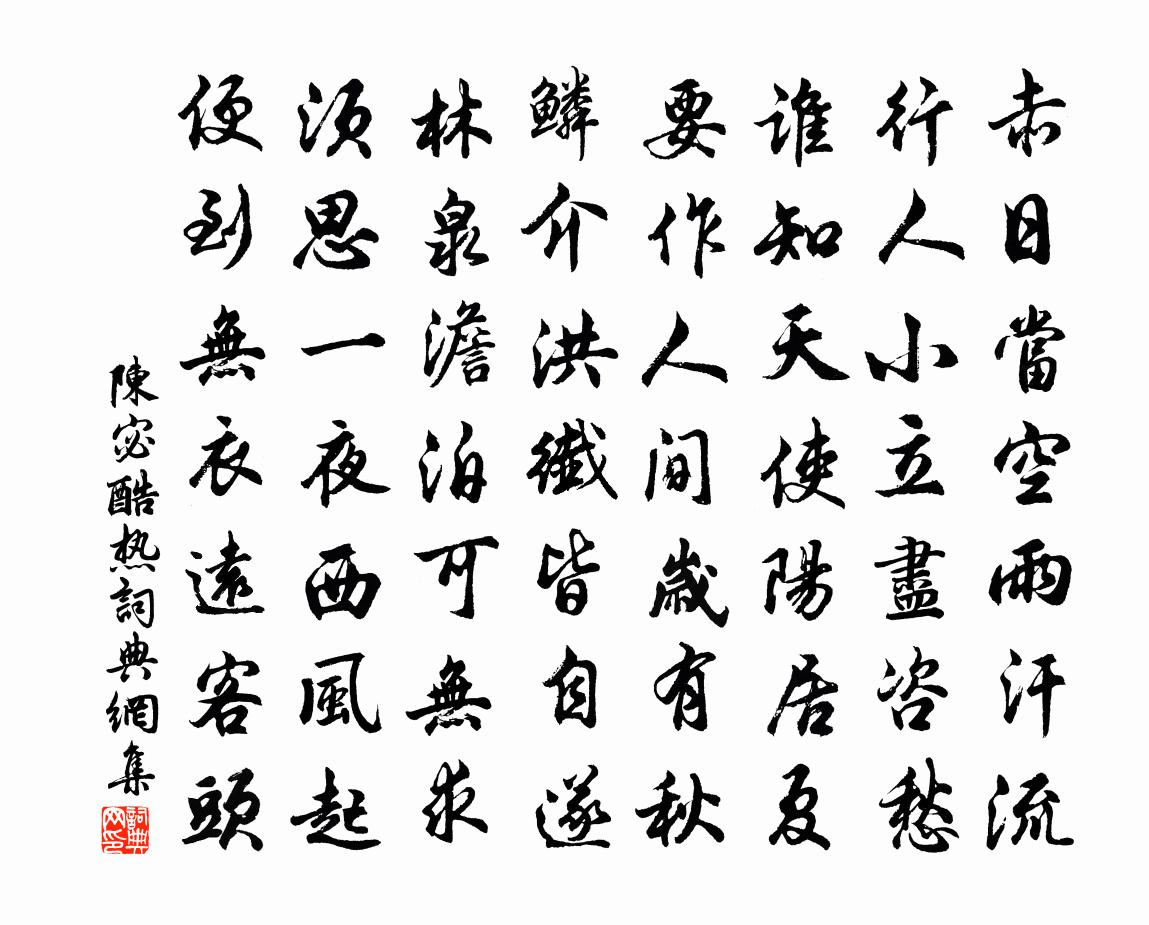 赤日當空雨汗流
行人小立盡咨愁
誰知天使陽居夏
要作人間歲有秋
鱗介洪纖皆自遂
林泉澹泊可無求
須思一夜西風起
便到無衣遠客頭
陳宓酷热詞典網集
詞典网印